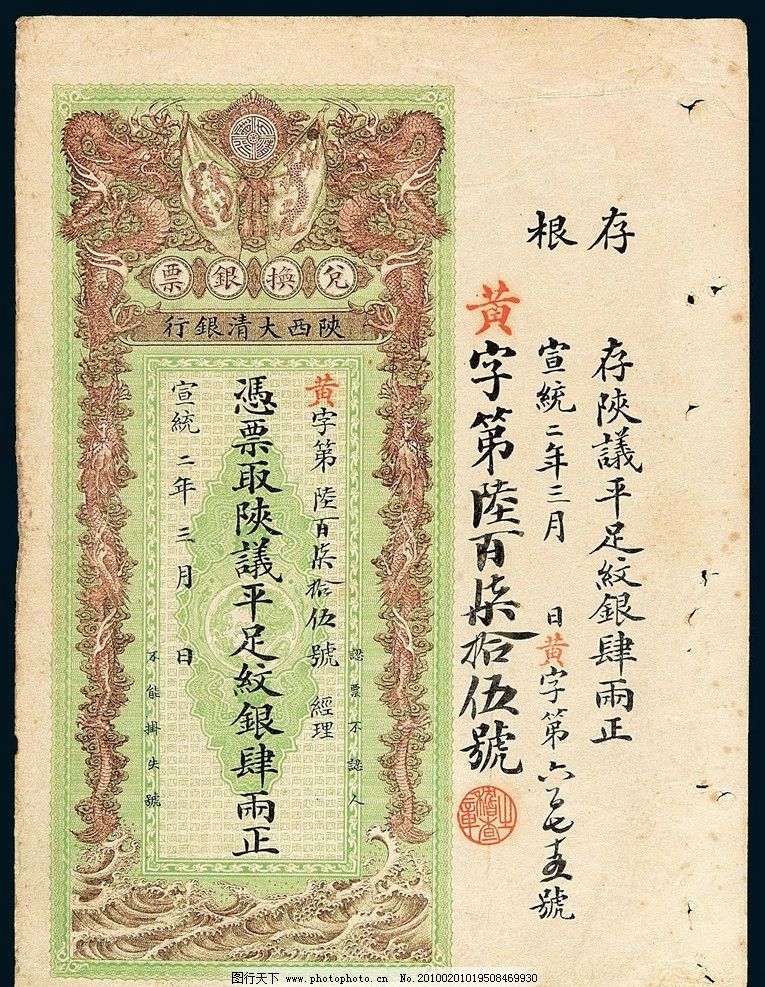 存根
存陝議平足紋銀肆兩正
宣統二年三月 日黃字第六百七十五號
黃字第陸百柒拾伍號
兌換銀票
陝西大清銀行
認票不認人
黃字第陸百柒拾伍號 經理
憑票取陝議平足紋銀肆兩正
宣統二年三月 日
不能掛失號
图行天下 www.photophoto.cn No.20100201019508469930